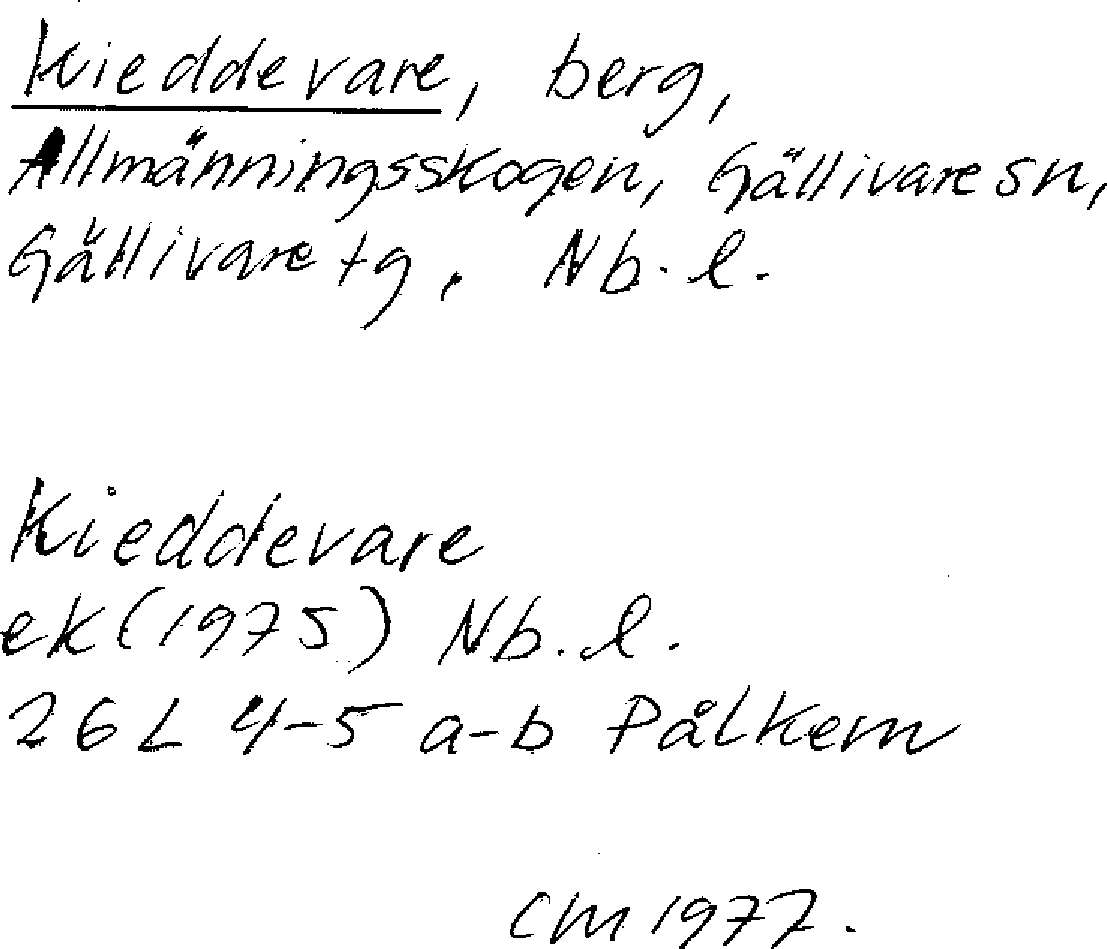 Kieddevare, berg,
Allmänningsskogen, Gällivare sn,
Gällivare tg. Nb. l.
Kieddevare
ek (1975) Nb. l.
26 L 4-5 a-b Pålkem
CM 1977.